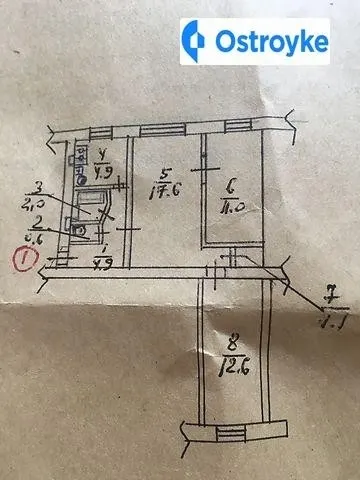 Ostroyke
4
4.9
5
17.6
6
11.0
3
2,0
2
0,6
1
4.9
1
7
1.1
8
12.6